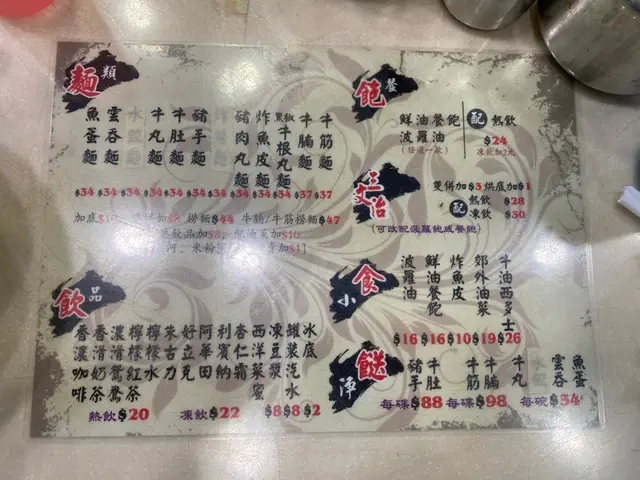 麵類
魚蛋麵
雲吞麵
牛丸麵
牛肚麵
豬手麵
豬肉丸麵
炸魚皮麵
黑椒牛根丸麵
牛腩麵
牛筋麵
$34 $34 $34 $34 $34 $34 $34 $34 $34 $34 $37 $37
加底$10
撈麵$44 牛腩/牛筋撈麵$47
飲品
香濃咖啡
香滑奶茶
濃滑鴛鴦
檸檬紅茶
檸檬水
朱古力
好立克
阿華田
利賓納
杏仁霜
西洋菜蜜
凍豆漿
罐裝汽水
冰底
熱飲$20 凍飲$22 $8 $8 $2
餐飽
鮮油餐飽
菠蘿油
(任選一款)
配 熱飲
$24
凍飲加2元
三文治
雙併加$3 烘底加$1
配 熱飲 $28
凍飲 $30
(可改配菠蘿飽或餐飽)
小食
菠蘿油
鮮油餐飽
炸魚皮
郊外油菜
牛油西多士
$16 $16 $10 $19 $26
淨餸
豬手
牛肚
牛筋
牛腩
牛丸
雲吞
魚蛋
每碟$88 每碟$98 每碗$34